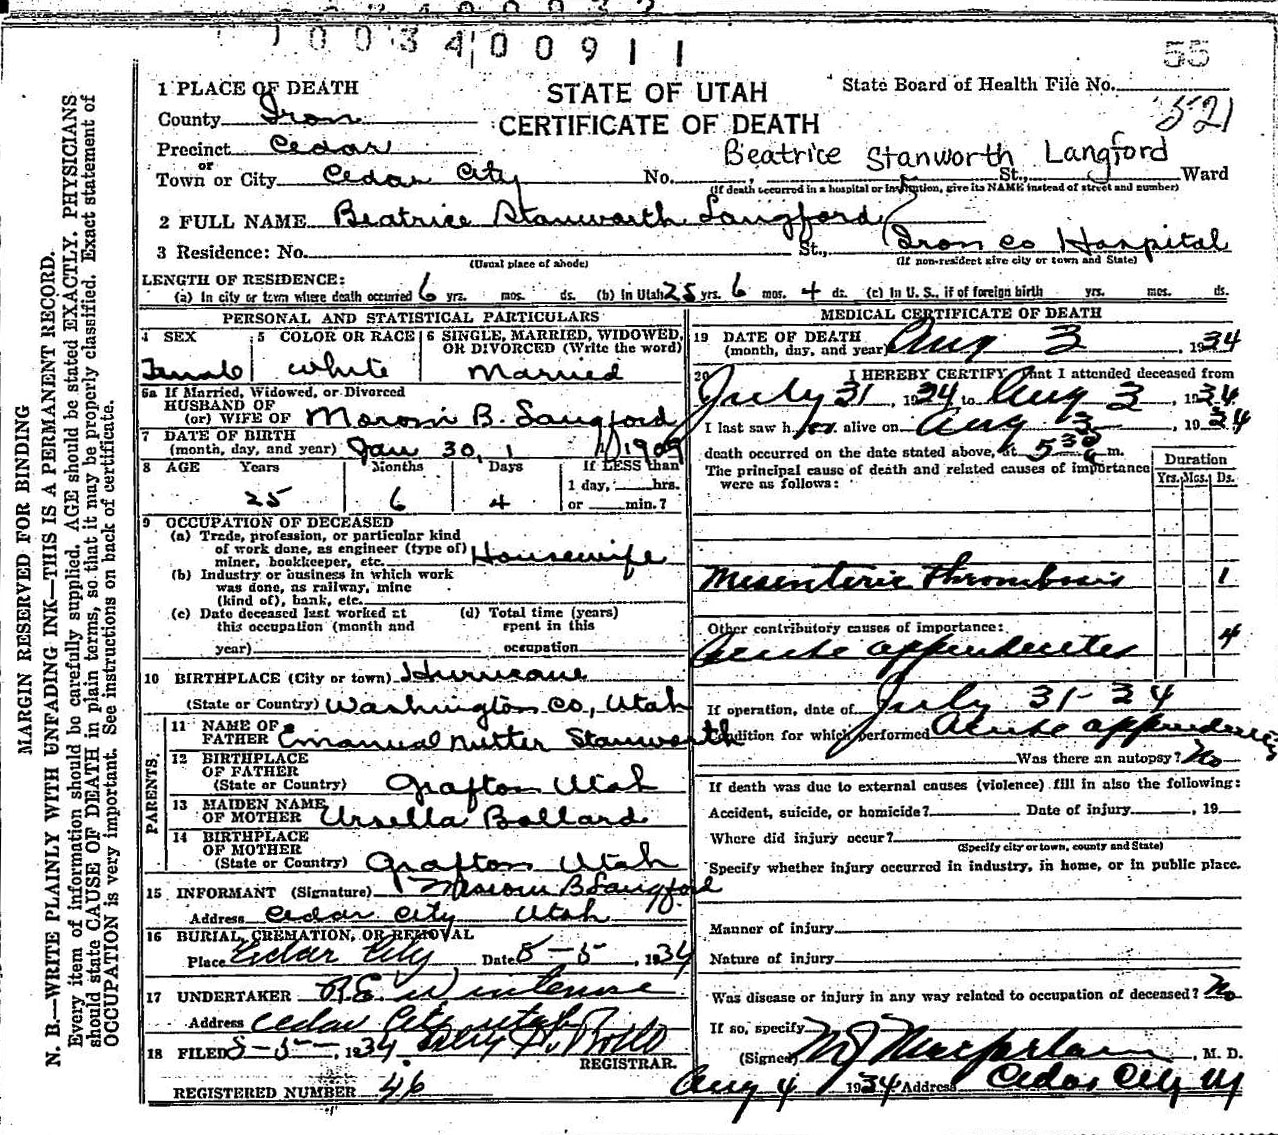 7 0 0 3 4 0 0 9 1 1
55
1 PLACE OF DEATH
STATE OF UTAH
CERTIFICATE OF DEATH
State Board of Health File No.
521
County Iron
Precinct Cedar
or
Town or City Cedar City No. , St., Ward
Beatrice Stanworth Langford
(If death occurred in a hospital or institution, give its NAME instead of street and number)
2 FULL NAME Beatrice Stanworth Langford
3 Residence: No. St., Iron Co Hospital
(Usual place of abode) (If non-resident give city or town and State)
LENGTH OF RESIDENCE:
(a) In city or town where death occurred 6 yrs. mos. ds. (b) In Utah 25 yrs. 6 mos. 4 ds. (c) In U. S., if of foreign birth yrs. mos. ds.
PERSONAL AND STATISTICAL PARTICULARS
4 SEX
Female
5 COLOR OR RACE
White
6 SINGLE, MARRIED, WIDOWED, OR DIVORCED (Write the word)
Married
6a If Married, Widowed, or Divorced
HUSBAND OF
(or) WIFE OF Moroni B. Langford
7 DATE OF BIRTH
(month, day, and year) Jan 30, 1909
8 AGE Years Months Days If LESS than
1 day, hrs.
25 6 4 or min.?
9 OCCUPATION OF DECEASED
(a) Trade, profession, or particular kind
of work done, as engineer (type of)
miner, bookkeeper, etc. Housewife
(b) Industry or business in which work
was done, as railway, mine
(kind of), bank, etc.
(c) Date deceased last worked at
this occupation (month and
year)
(d) Total time (years)
spent in this
occupation
10 BIRTHPLACE (City or town) Hurricane
(State or Country) Washington Co, Utah
PARENTS.
11 NAME OF
FATHER Emanuel Nutter Stanworth
12 BIRTHPLACE
OF FATHER
(State or Country) Grafton Utah
13 MAIDEN NAME
OF MOTHER Ursella Ballard
14 BIRTHPLACE
OF MOTHER
(State or Country) Grafton Utah
15 INFORMANT (Signature) Moroni B Langford
Address Cedar City Utah
16 BURIAL, CREMATION, OR REMOVAL
Place Cedar City Date 8-5, 1934
17 UNDERTAKER
Address Cedar City Utah
18 FILED 8-5-, 1934.
REGISTRAR.
REGISTERED NUMBER 46
MEDICAL CERTIFICATE OF DEATH
19 DATE OF DEATH
(month, day, and year) Aug 3, 1934
20 I HEREBY CERTIFY that I attended deceased from
July 31, 1934 to Aug 3, 1934
I last saw her alive on Aug 3, 1934
death occurred on the date stated above, at 5 30 a m.
The principal cause of death and related causes of importance
were as follows:
Duration
Yrs. Mos. Ds.
Mesenteric Thrombosis 1
Other contributory causes of importance:
acute appendicites 4
If operation, date of July 31-34
Condition for which performed Acute appendicitis
Was there an autopsy? No
If death was due to external causes (violence) fill in also the following:
Accident, suicide, or homicide? Date of injury , 19
Where did injury occur?
(Specify city or town, county and State)
Specify whether injury occurred in industry, in home, or in public place.
Manner of injury
Nature of injury
Was disease or injury in any way related to occupation of deceased? No
If so, specify
(Signed) M J Macfarlane, M. D.
Aug 4 1934 Address Cedar City Ut
MARGIN RESERVED FOR BINDING
N. B.—WRITE PLAINLY WITH UNFADING INK—THIS IS A PERMANENT RECORD.
Every item of information should be carefully supplied. AGE should be stated EXACTLY. PHYSICIANS
should state CAUSE OF DEATH in plain terms, so that it may be properly classified. Exact statement of
OCCUPATION is very important. See instructions on back of certificate.